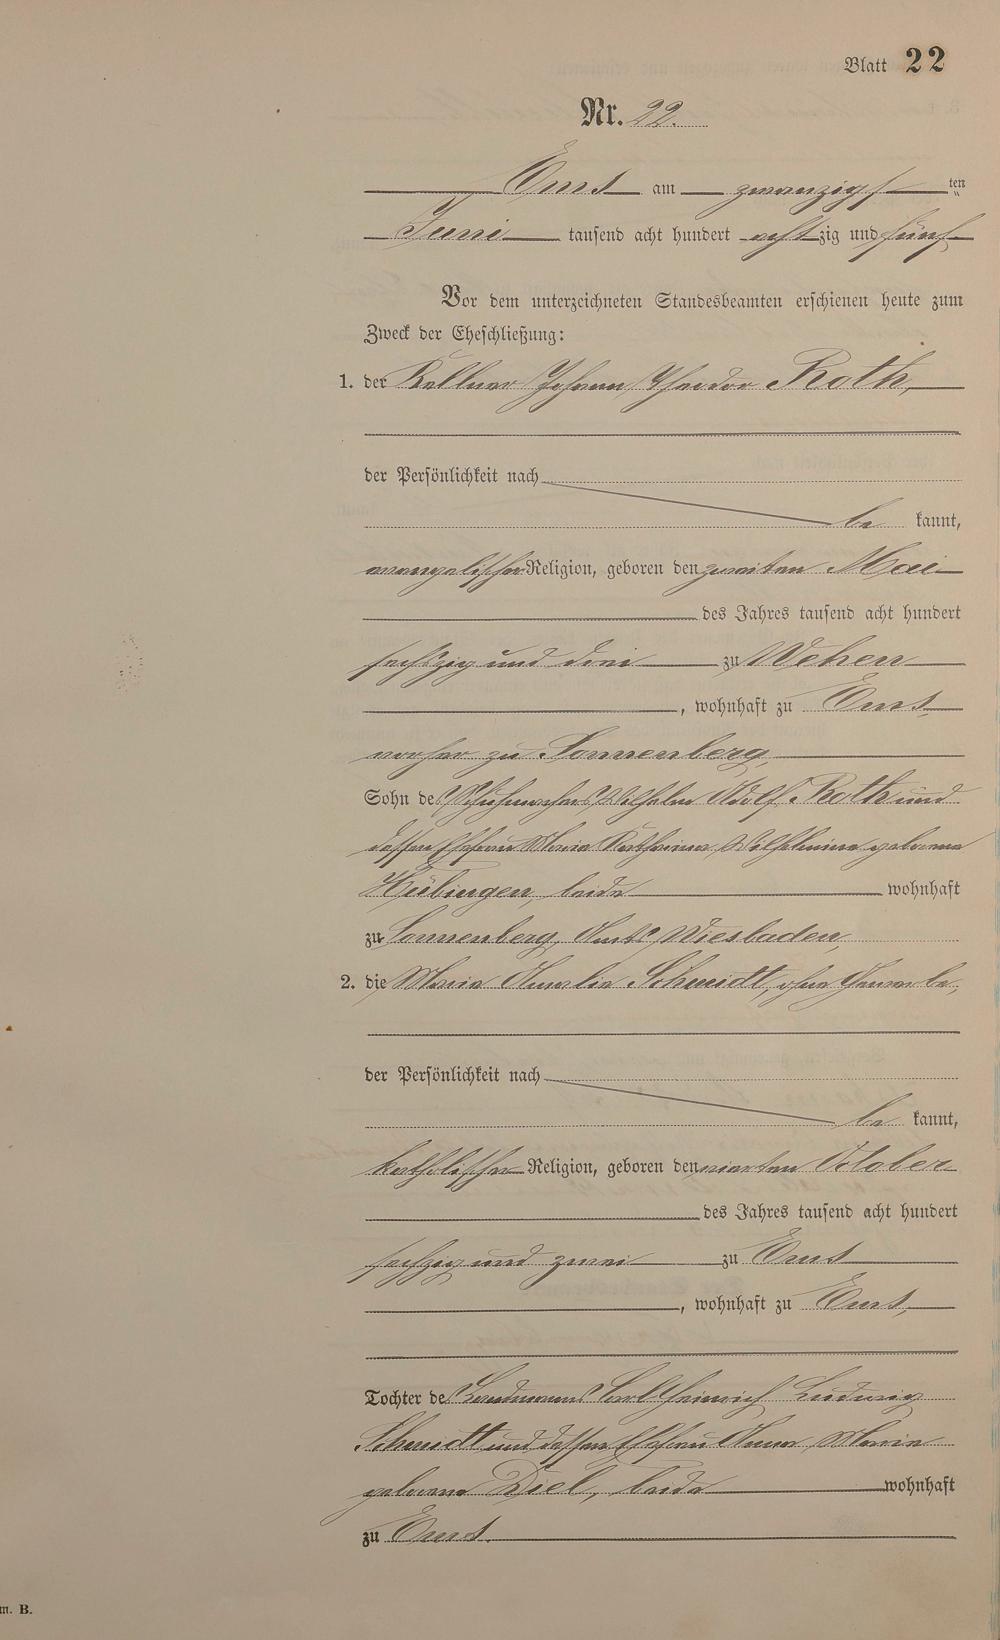 Blatt 22
Nr. 22.
Ems am zwanzigsten
Juni tausend acht hundert achtzig und fünf
Vor dem unterzeichneten Standesbeamten erschienen heute zum
Zweck der Eheschließung:
1. der Kellner Johann Theodor Roth,
der Persönlichkeit nach
be kannt,
evangelischer Religion, geboren den zweiten Mai
des Jahres tausend acht hundert
sechszig und drei zu Wehen
, wohnhaft zu Ems,
vorher zu Sonnenberg,
Sohn des Schuhmachers Wilhelm Adolf Roth und
dessen Ehefrau Maria Katharina Wilhelmine geborene
Hübingen, beide wohnhaft
zu Sonnenberg, Amts Wiesbaden,
2. die Maria Amalia Schmidt, ohne Gewerbe,
der Persönlichkeit nach
be kannt,
katholischer Religion, geboren den vierten October
des Jahres tausend acht hundert
sechzig und zwei zu Ems
, wohnhaft zu Ems,
Tochter des Landmanns Carl Heinrich Ludwig
Schmidt und dessen Ehefrau Anna Maria
geborene Diel, beide wohnhaft
zu Ems.
m. B.